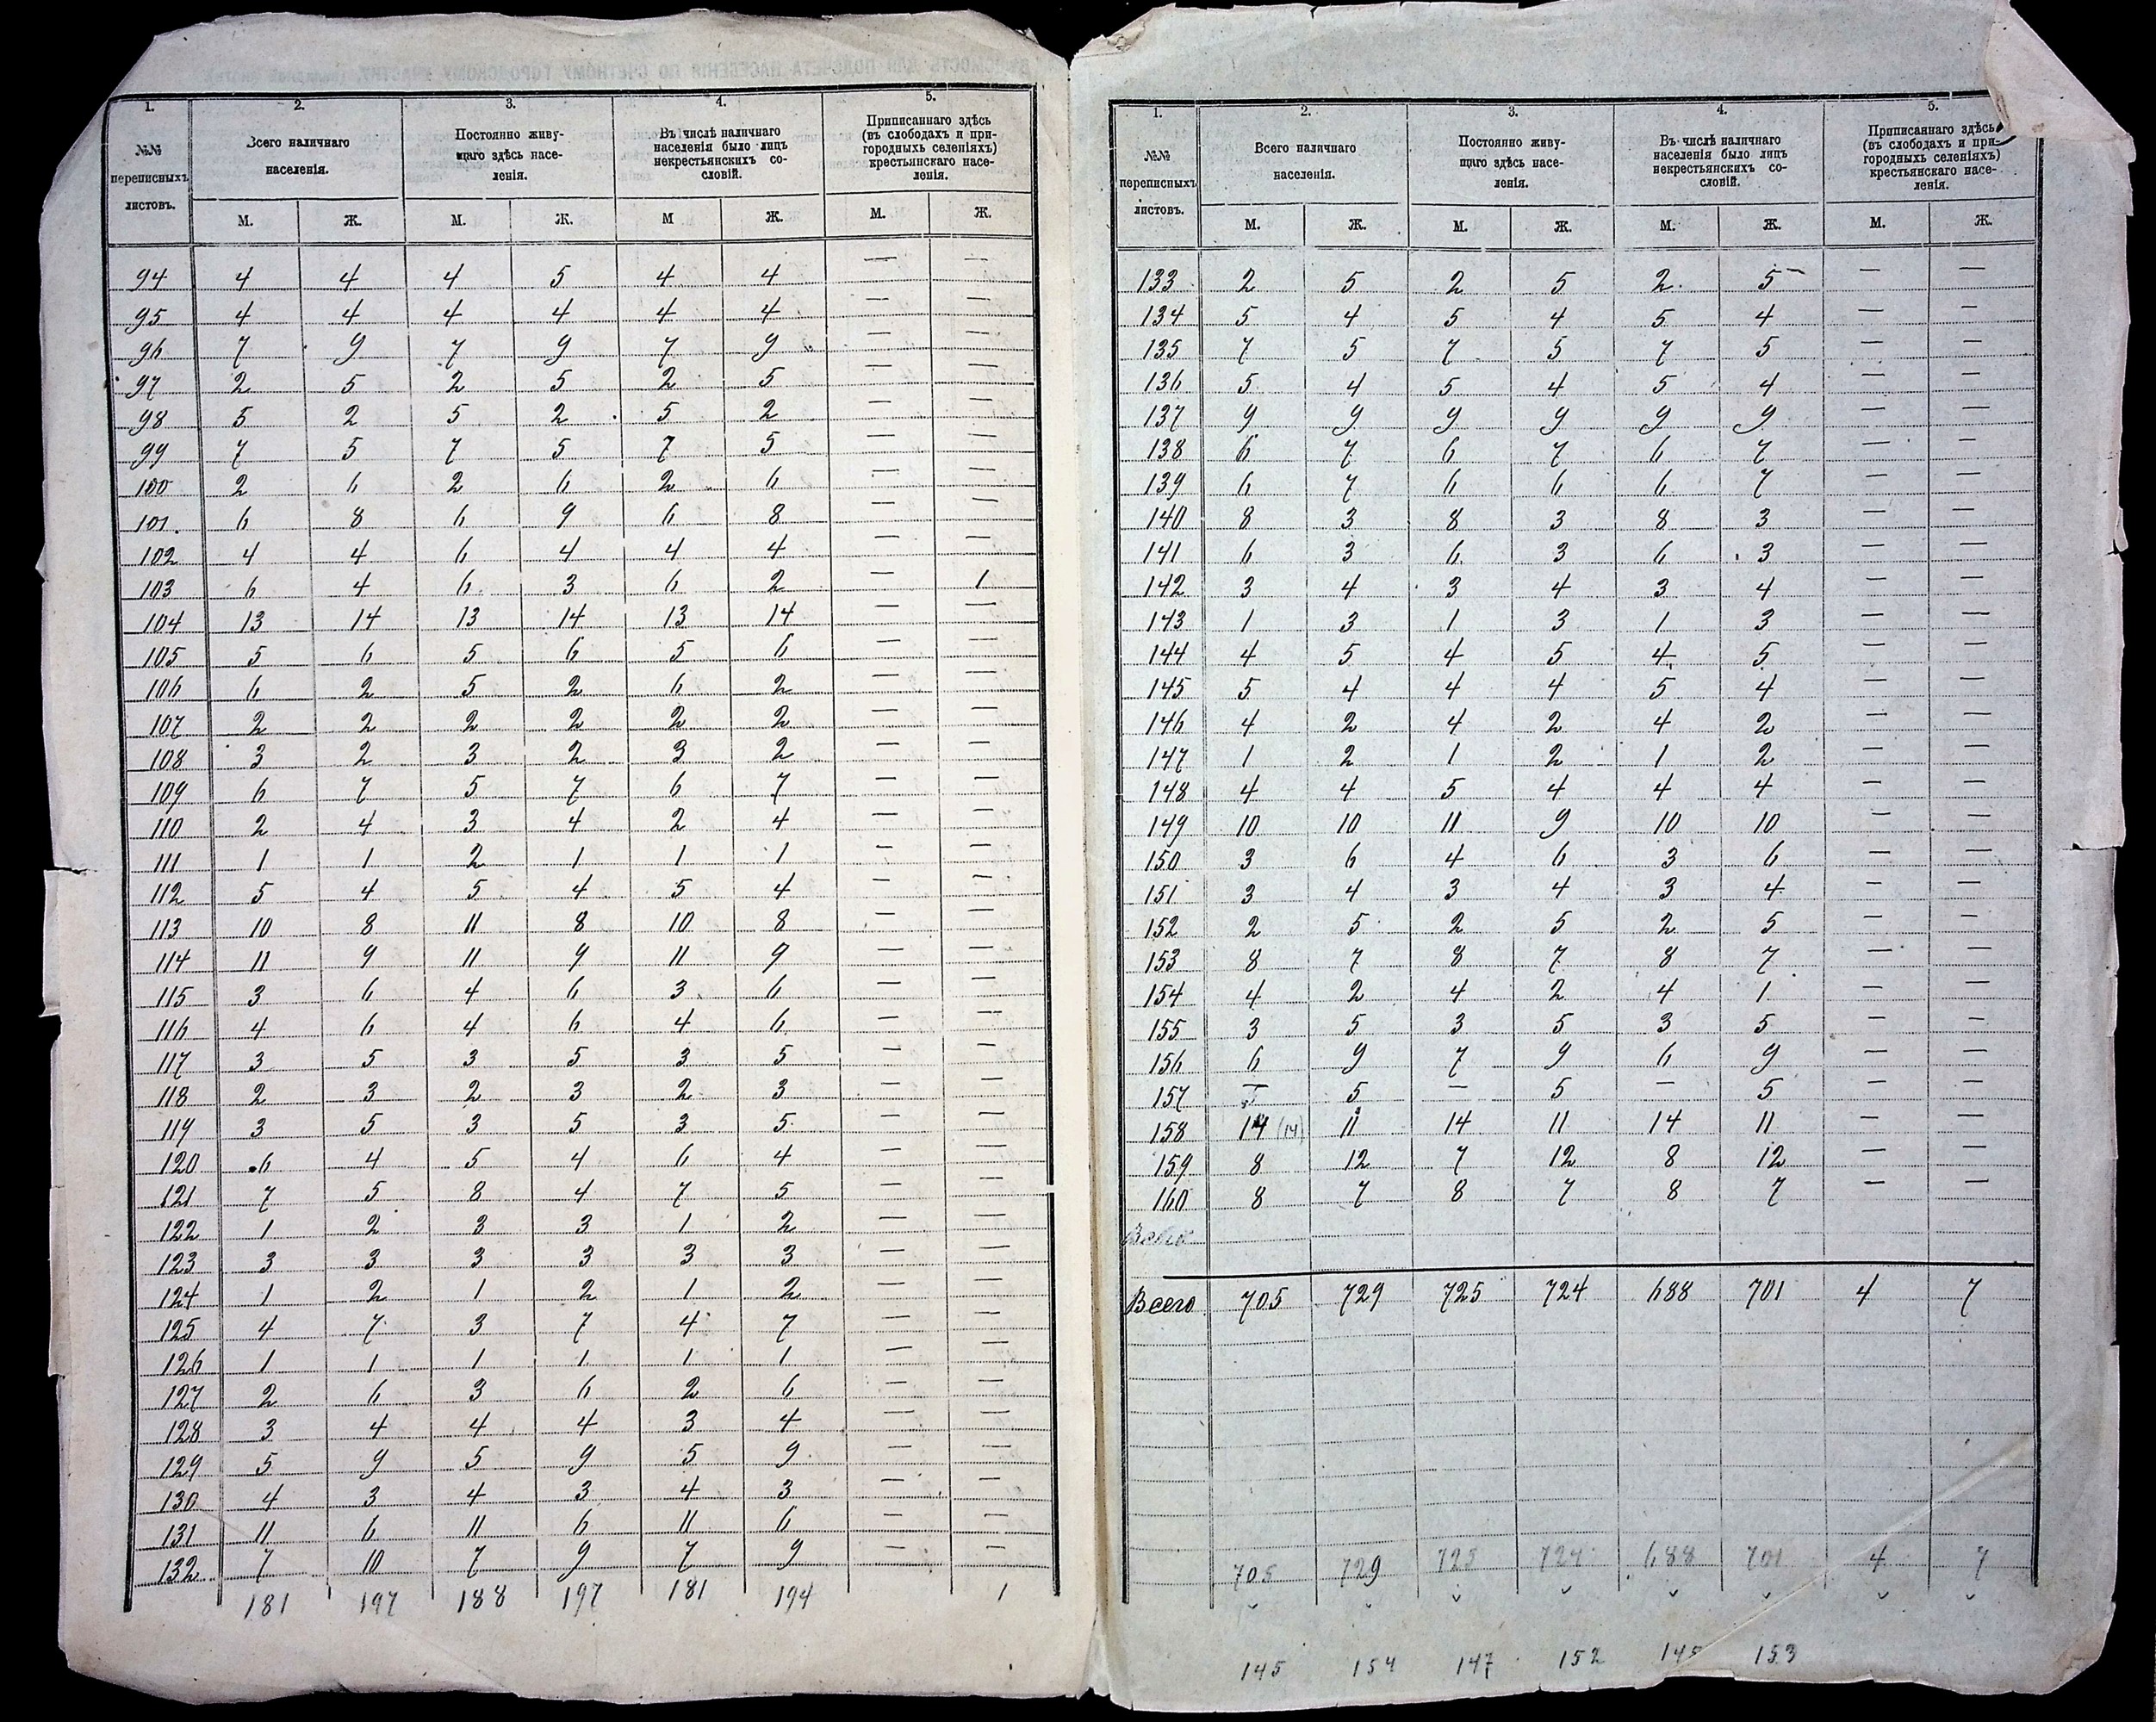 1. 2. 3. 4. 5.
№№ переписныхъ листовъ. Всего наличнаго населенія. Постоянно живущаго здѣсь населенія. Въ числѣ наличнаго населенія было лицъ некрестьянскихъ сословій. Приписаннаго здѣсь (въ слободахъ и пригородныхъ селеніяхъ) крестьянскаго населенія.
М. Ж. М. Ж. М Ж. М. Ж.
94 4 4 4 5 4 4 — —
95 4 4 4 4 4 4 — —
96 7 9 7 9 7 9 — —
97 2 5 2 5 2 5 — —
98 5 2 5 2 5 2 — —
99 7 5 7 5 7 5 — —
100 2 6 2 6 2 6 — —
101 6 8 6 9 6 8 — —
102 4 4 6 4 4 4 — —
103 6 4 6 3 6 2 — 1
104 13 14 13 14 13 14 — —
105 5 6 5 6 5 6 — —
106 6 2 5 2 6 2 — —
107 2 2 2 2 2 2 — —
108 3 2 3 2 3 2 — —
109 6 7 5 7 6 7 — —
110 2 4 3 4 2 4 — —
111 1 1 2 1 1 1 — —
112 5 4 5 4 5 4 — —
113 10 8 11 8 10 8 — —
114 11 9 11 9 11 9 — —
115 3 6 4 6 3 6 — —
116 4 6 4 6 4 6 — —
117 3 5 3 5 3 5 — —
118 2 3 2 3 2 3 — —
119 3 5 3 5 3 5 — —
120 6 4 5 4 6 4 — —
121 7 5 8 4 7 5 — —
122 1 2 3 3 1 2 — —
123 3 3 3 3 3 3 — —
124 1 2 1 2 1 2 — —
125 4 7 3 7 4 7 — —
126 1 1 1 1 1 1 — —
127 2 6 3 6 2 6 — —
128 3 4 4 4 3 4 — —
129 5 9 5 9 5 9 — —
130 4 3 4 3 4 3 — —
131 11 6 11 6 11 6 — —
132 7 10 7 9 7 9 — —
181 197 188 197 181 194 1
1. 2. 3. 4. 5.
№№ переписныхъ листовъ. Всего наличнаго населенія. Постоянно живущаго здѣсь населенія. Въ числѣ наличнаго населенія было лицъ некрестьянскихъ сословій. Приписаннаго здѣсь (въ слободахъ и пригородныхъ селеніяхъ) крестьянскаго населенія.
М. Ж. М. Ж. М. Ж. М. Ж.
133 2 5 2 5 2 5 — —
134 5 4 5 4 5 4 — —
135 7 5 7 5 7 5 — —
136 5 4 5 4 5 4 — —
137 9 9 9 9 9 9 — —
138 6 7 6 7 6 7 — —
139 6 7 6 6 6 7 — —
140 8 3 8 3 8 3 — —
141 6 3 6 3 6 3 — —
142 3 4 3 4 3 4 — —
143 1 3 1 3 1 3 — —
144 4 5 4 5 4 5 — —
145 5 4 4 4 5 4 — —
146 4 2 4 2 4 2 — —
147 1 2 1 2 1 2 — —
148 4 4 5 4 4 4 — —
149 10 10 11 9 10 10 — —
150 3 6 4 6 3 6 — —
151 3 4 3 4 3 4 — —
152 2 5 2 5 2 5 — —
153 8 7 8 7 8 7 — —
154 4 2 4 2 4 1 — —
155 3 5 3 5 3 5 — —
156 6 9 7 9 6 9 — —
157 — 5 — 5 — 5 — —
158 14 (14) 11 14 11 14 11 — —
159 8 12 7 12 8 12 — —
160 8 7 8 7 8 7 — —
Всего 705 729 725 724 688 701 4 7
705 729 725 724 688 701 4 7
145 154 147 152 145 153